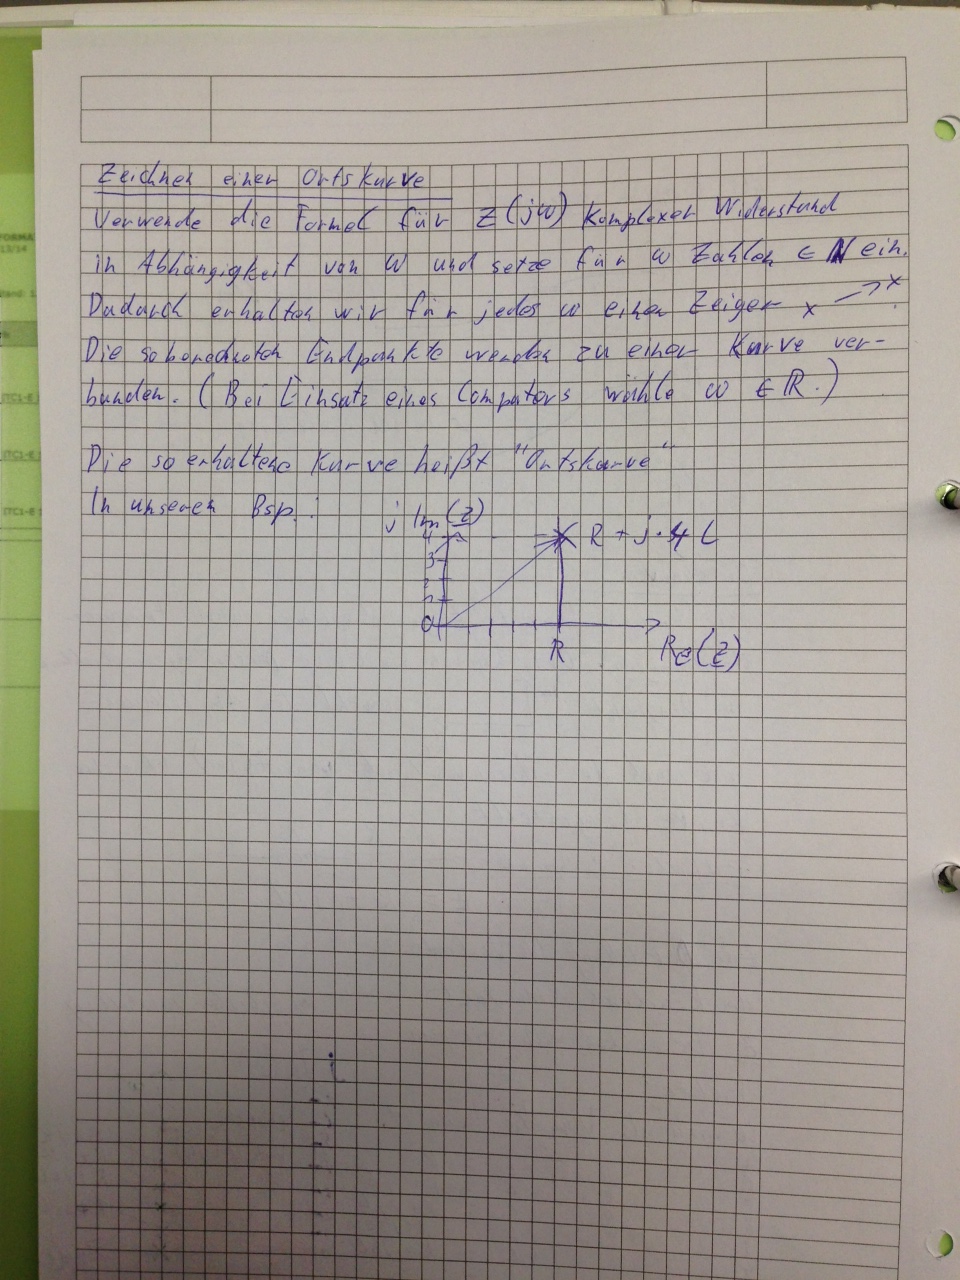 Zeichnen einer Ortskurve
Verwende die Formel für Z(jω) komplexer Widerstand
in Abhängigkeit von ω und setze für ω Zahlen ∈ ℕ ein.
Dadurch erhalten wir für jedes ω einen Zeiger x → x.
Die so berechneten Endpunkte werden zu einer Kurve ver-
bunden. (Bei Einsatz eines Computers wähle ω ∈ ℝ.)
Die so erhaltene Kurve heißt "Ortskurve"
In unseren Bsp.:
j Im(Z)
4
R + j·4 L
3
2
0
R
Re(Z)